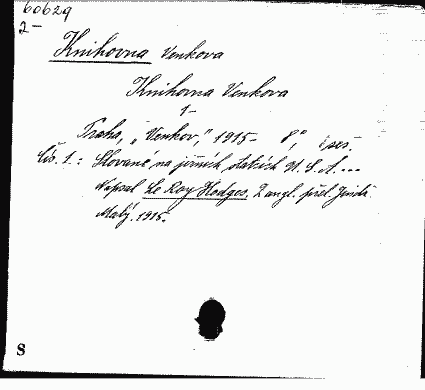 60629
2-
Knihovna Venkova
Knihovna Venkova
1-
Praha, „Venkov," 1915- 8°,
Čís. 1.: Slované na jižních statcích U. S. A. ...
Napsal Le Roy Hodges, Z angl. přel. Jindř.
Malý. 1915.
S